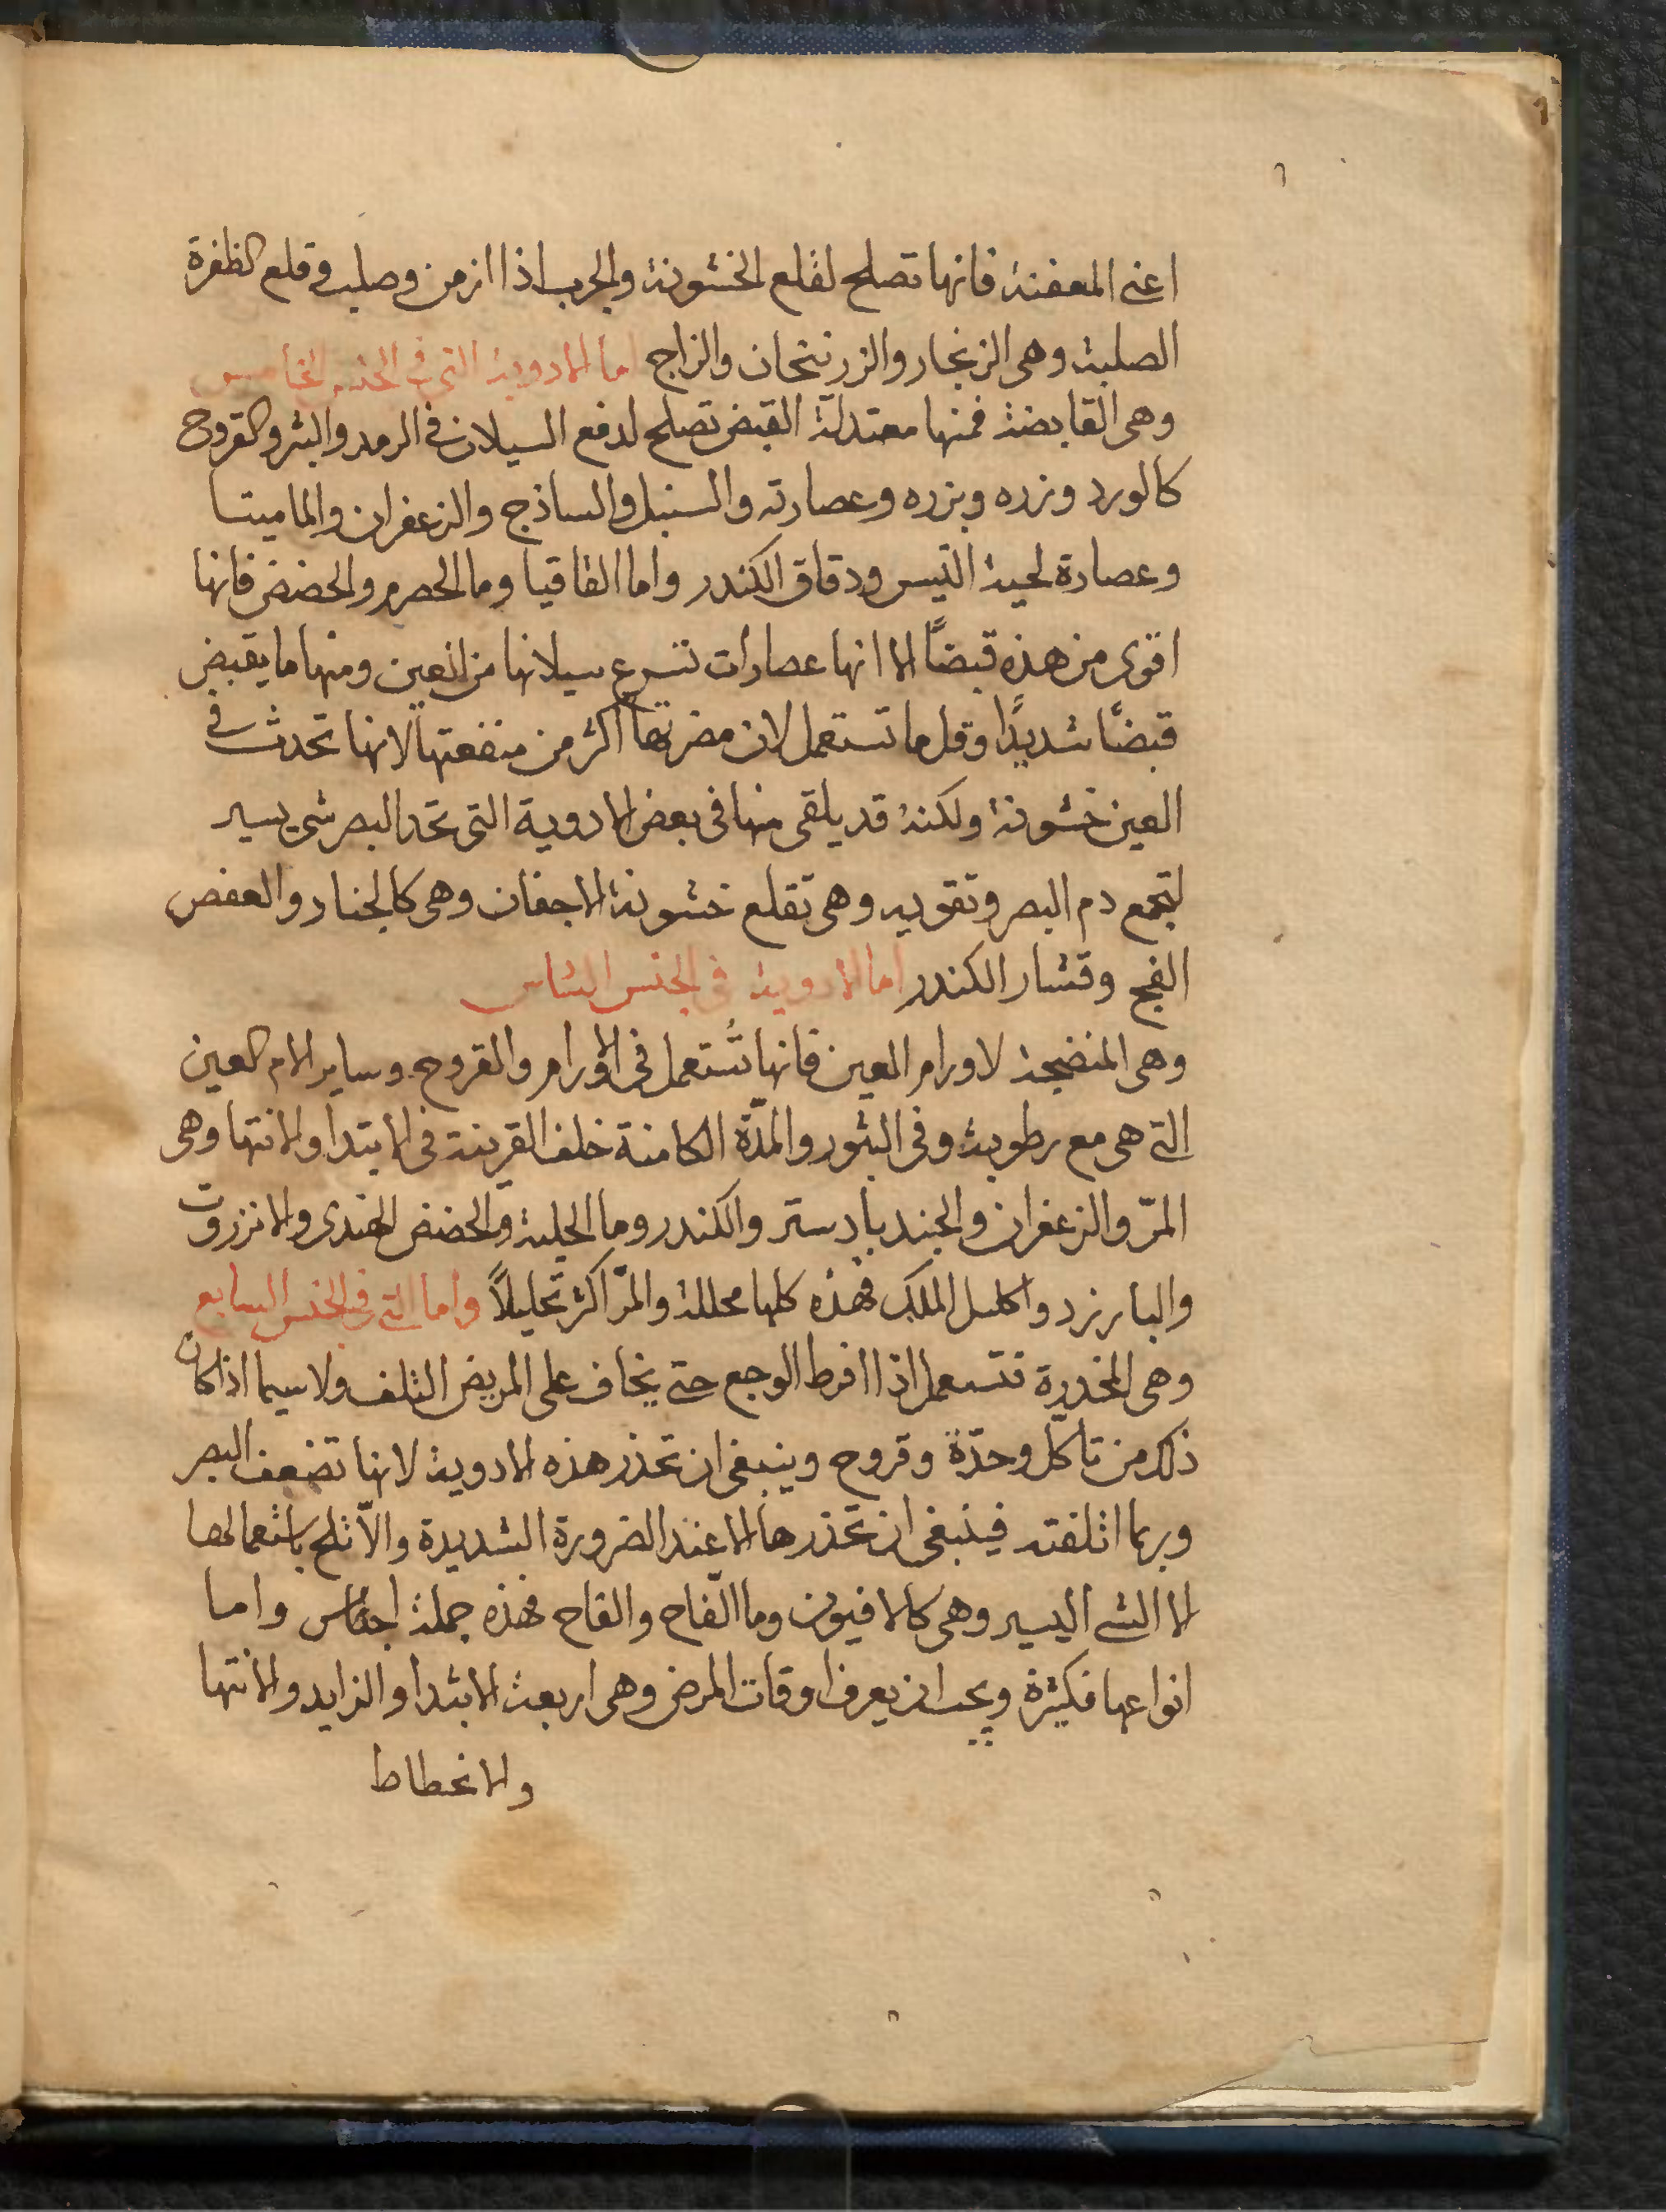 اعنى المعفنة فانها تصلح لقلع الخشونة والجرب اذا ازمن وصلب وقلع الظفرة
الصلبة وهى الزنجار والزرنيخان والزاج اما الادوية التى فى الجنس الخامس
وهى القابضة فمنها معتدلة القبض تصلح لدفع السيلان فى الرمد والبثر والقروح
كالورد وزره وبزره وعصارته والسنبل والساذج والزعفران والماميتا
وعصارة لحية التيس ودقاق الكندر واما القاقيا وما الحصرم والحضض فانها
اقوى من هذه قبضًا الا انها عصارات تسرع سيلانها من العين ومنها ما يقبض
قبضًا شديدًا وقل ما تستعمل لان مضرتها اكثر من منفعتها لانها تحدث فى
العين خشونة ولكنة قد يلقى منها فى بعض الادوية التى تحد البصر شى يسير
لتجمع دم البصر وتقويه وهى تقلع خشونة الاجفان وهى كالجنار والعفص
الفج وقشار الكندر اما الادوية فى الجنس الساس
وهى المنضجة لاورام العين فانها تُستعمل فى الاورام والقروح وساير الام العين
التى هى مع رطوبة وفى البثور والمدّة الكامنة خلف القرينة فى الابتدا والانتها وهى
المرّ والزعفران والجندبادستر والكندر وما الحلبة والحضض الهندى والانزروت
والبارزرد واكليل الملك فهذه كلها محللة والمرّ اكثر تحليلاً واما التى فى الجنس السابع
وهى المخدرة فتستعمل اذا افرط الوجع حتى يخاف على المريض التلف ولاسيما اذا كان
ذلك من تاكّل وحدّة وقروح وينبغى ان تحذر هذه الادوية لانها تضعف البصر
وربما اتلفته فينبغى ان تحذرها الا عند الضرورة الشديدة والاّ تلح باستعمالها
الا الشى اليسير وهى كالافيون وما الفاح والقاح فهذه جملة اجناس واما
انواعها فكثيرة ويجب ان يعرف اوقات المرض وهى اربعة الابتدا والتزايد والانتها
والانحطاط